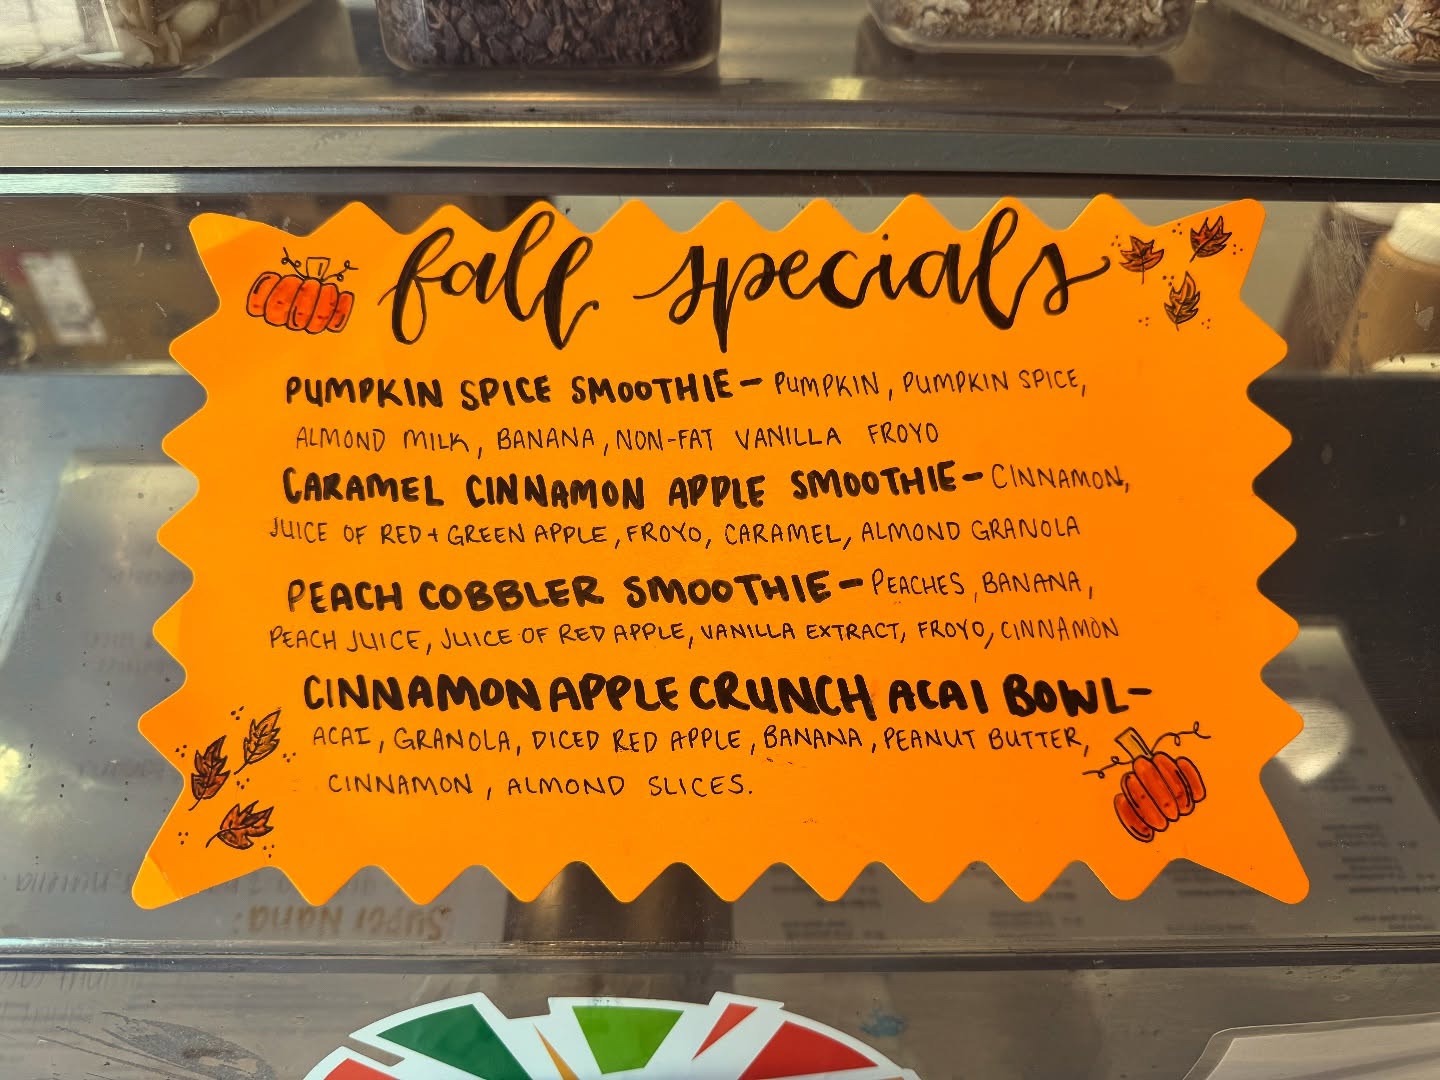 fall specials
PUMPKIN SPICE SMOOTHIE - PUMPKIN, PUMPKIN SPICE,
ALMOND MILK, BANANA, NON-FAT VANILLA FROYO
CARAMEL CINNAMON APPLE SMOOTHIE - CINNAMON,
JUICE OF RED + GREEN APPLE, FROYO, CARAMEL, ALMOND GRANOLA
PEACH COBBLER SMOOTHIE - PEACHES, BANANA,
PEACH JUICE, JUICE OF RED APPLE, VANILLA EXTRACT, FROYO, CINNAMON
CINNAMON APPLE CRUNCH ACAI BOWL -
ACAI, GRANOLA, DICED RED APPLE, BANANA, PEANUT BUTTER,
CINNAMON, ALMOND SLICES.